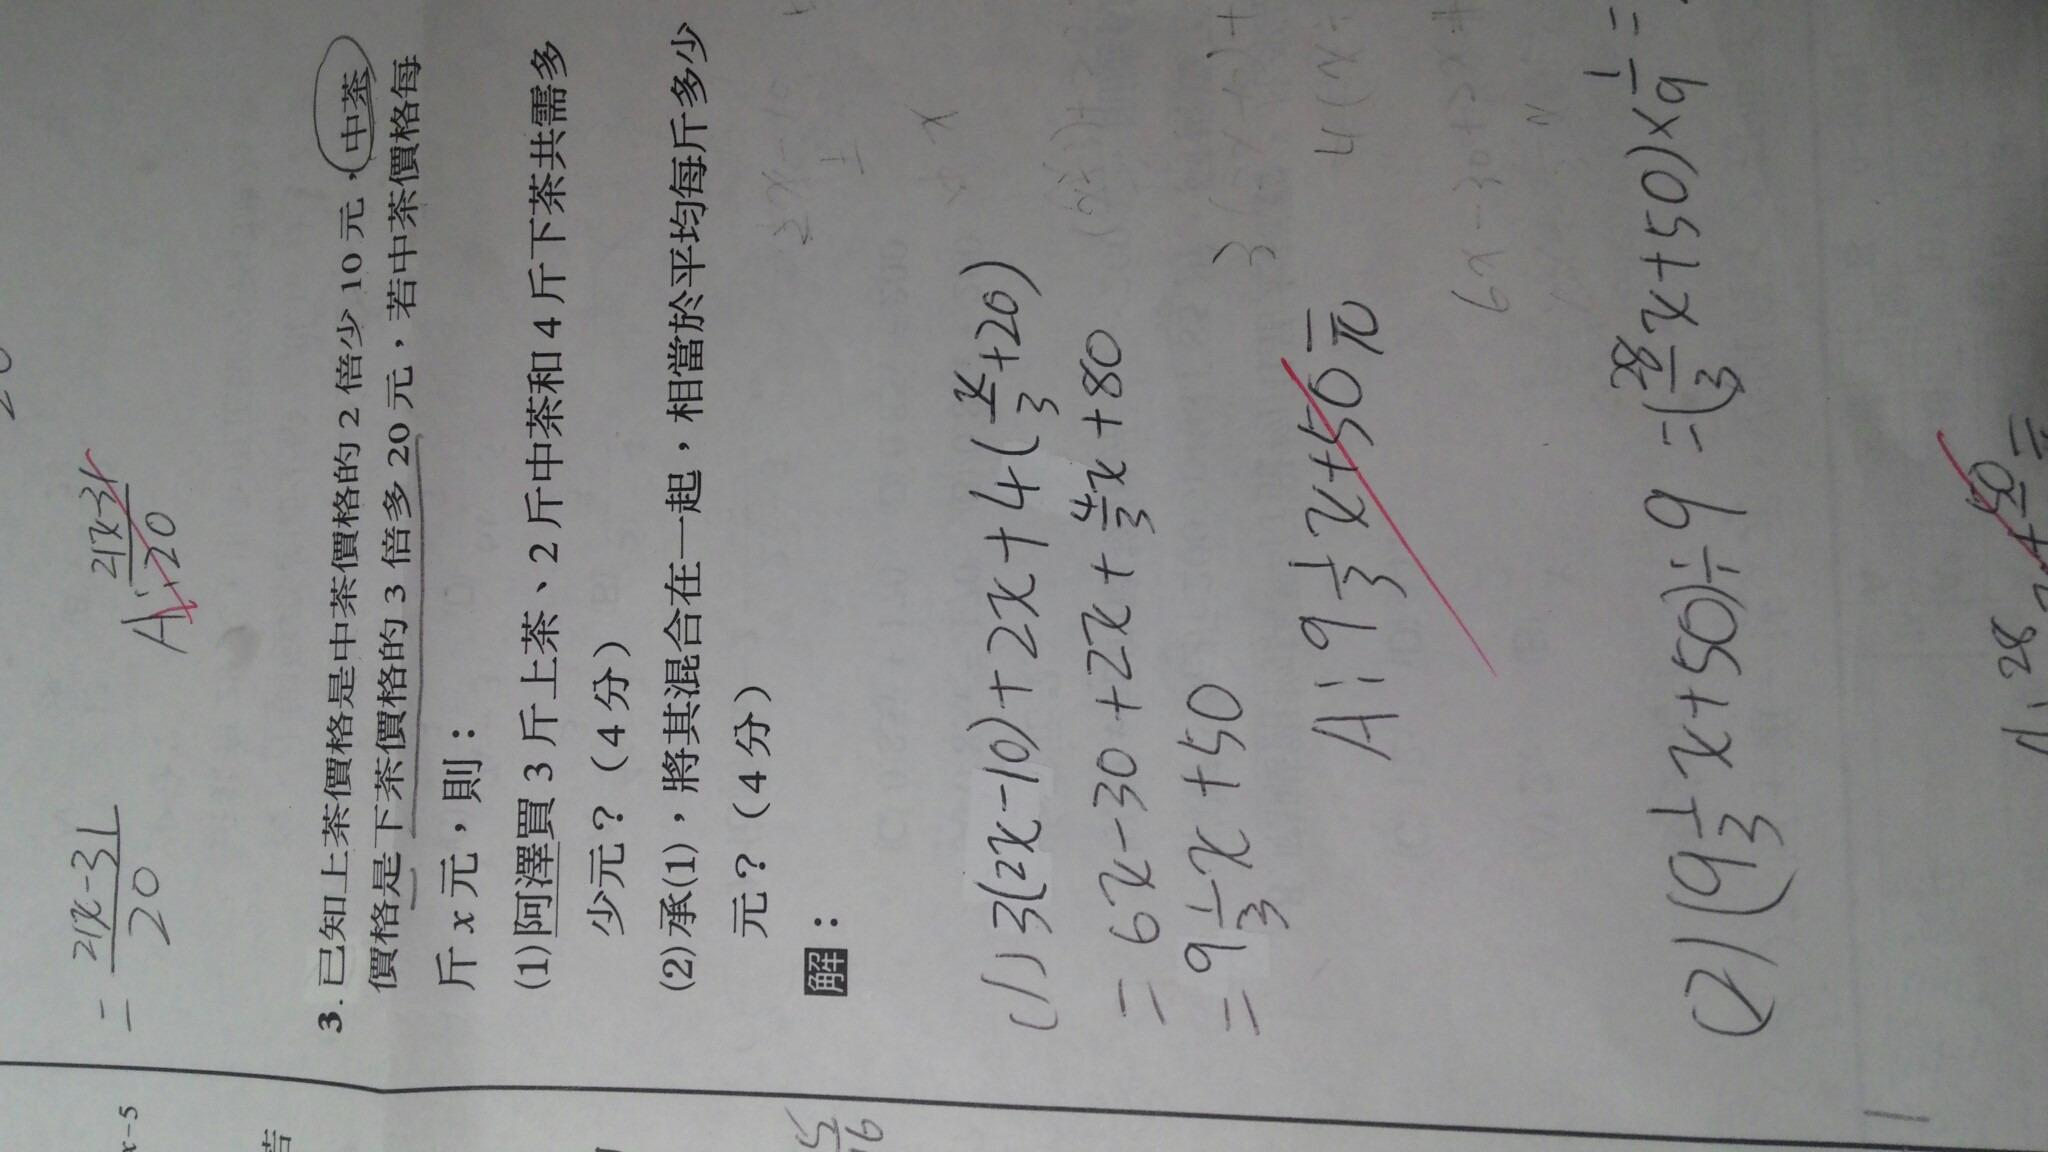 = 21x-31/20
A: 21x-31/20
3.已知上茶價格是中茶價格的2倍少10元,中茶
價格是下茶價格的3倍多20元,若中茶價格每
斤x元,則:
(1)阿澤買3斤上茶、2斤中茶和4斤下茶共需多
少元?(4分)
(2)承(1),將其混合在一起,相當於平均每斤多少
元?(4分)
解:
(1) 3(2x-10)+2x+4(x/3+20)
= 6x-30+2x+4/3x+80
= 9 1/3 x+50
A: 9 1/3 x+50元
(2) (9 1/3 x+50)÷9 = (28/3 x+50)×1/9 =
x-5
告